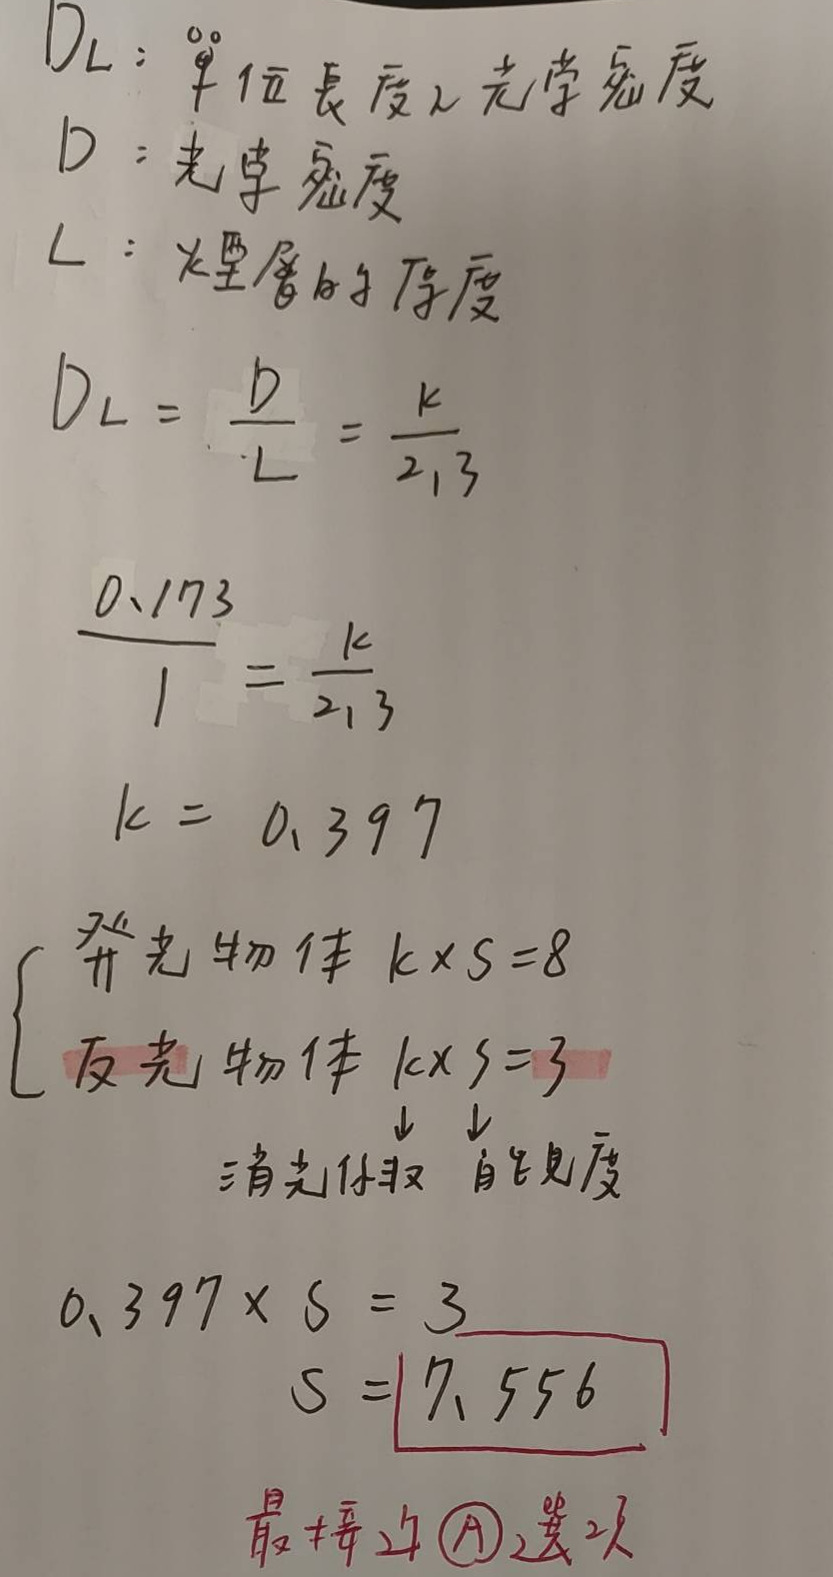 DL：單位長度之光學密度
D：光學密度
L：煙層的厚度
DL = D/L = K/2.3
0.173/1 = K/2.3
k = 0.397
發光物体 k×S=8
反光物体 k×S=3
↓ ↓
消光係取 能見度
0.397×S = 3
S = 7.556
最接近Ⓐ選項